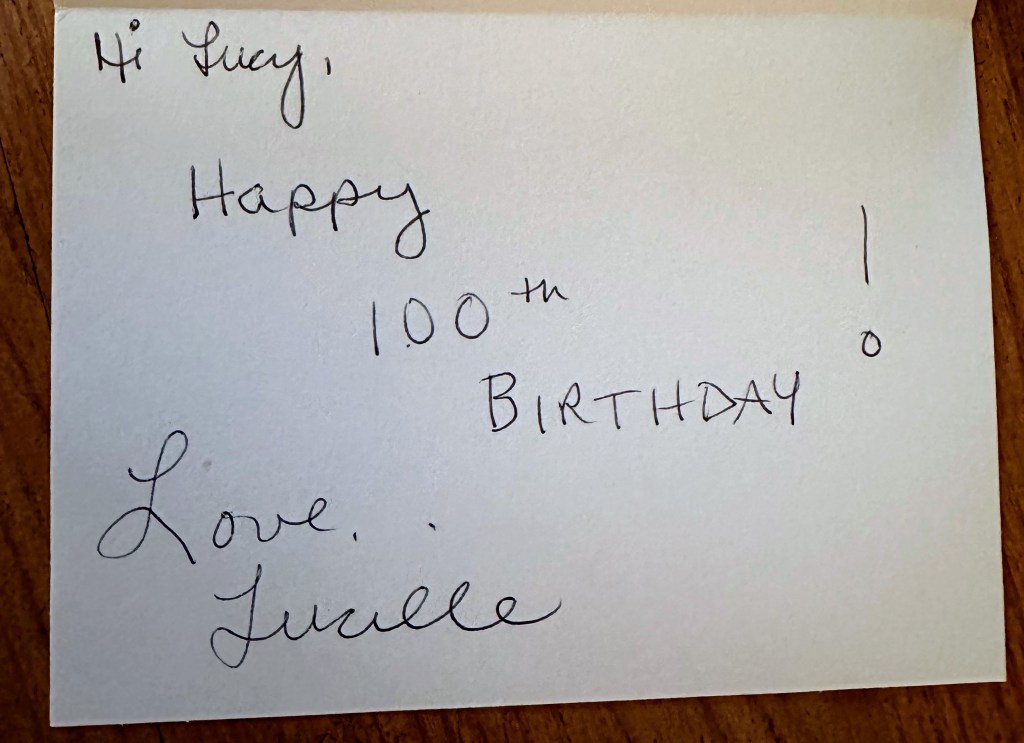 Hi Lucy,
Happy
100th
BIRTHDAY!
Love,
Lucille